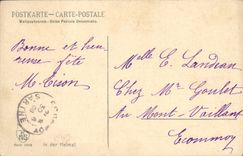 POSTKARTE - CARTE-POSTALE
Weltpostverein - Union Postale Universelle
Bonne et heu
reuse fête
M. Cison
Melle C. Landeau
Chez Mr Goulet
Au Mont-Vaillant
Ecommoy
In der Heimat